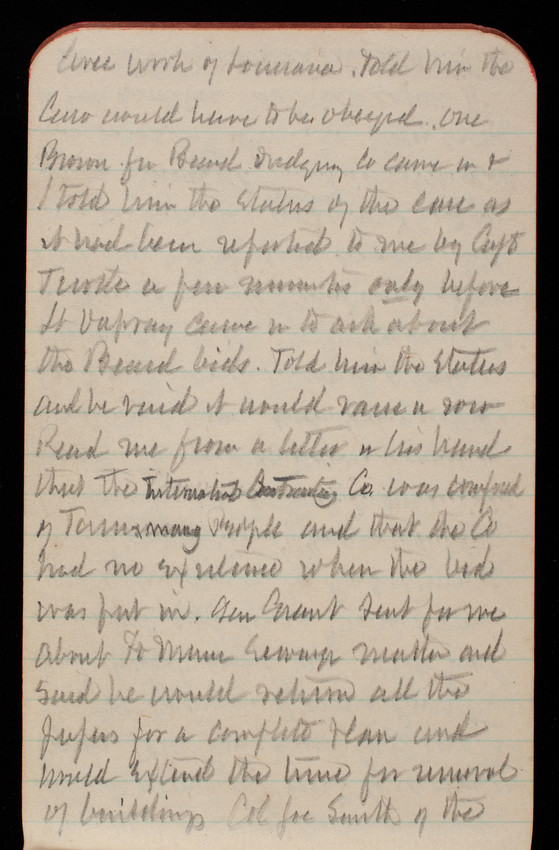 levee work of Louisiana. Told him the
Law would have to be obeyed. One
Brown for Beard Dredging Co came in &
I told him the Status of the case as
it had been reported to me by Capt
Turtle a few minutes only before
Lt came in to ask about
the Beard bids. Told him the Status
and he said it would raise a row
Read me from a letter in his hand
that the International Contracting Co. was composed
of Tammany People and that the Co
had no existence when the bid
was put in. Gen Grant sent for me
about Ft Sewage matter and
said he would return all the
papers for a complete plan and
would extend the time for removal
of buildings Col Joe Smith of the